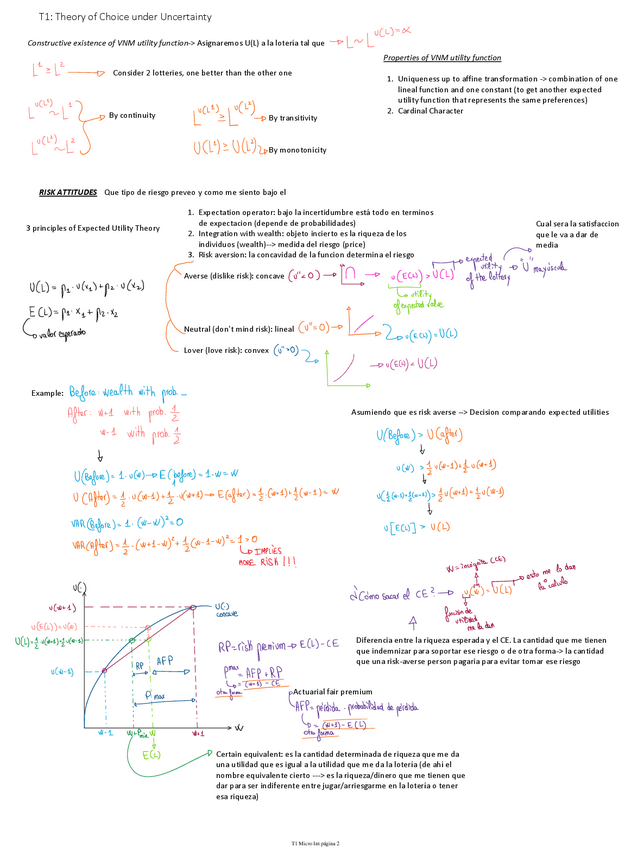 T1: Theory of Choice under Uncertainty
Constructive existence of VNM utility function-> Asignaremos U(L) a la loteria tal que → L ~ L^U(L)=α
Properties of VNM utility function
L¹ ≥ L² → Consider 2 lotteries, one better than the other one
1. Uniqueness up to affine transformation -> combination of one
lineal function and one constant (to get another expected
utility function that represents the same preferences)
2. Cardinal Character
L^U(L¹) ~ L¹
L^U(L²) ~ L²
By continuity
L^U(L¹) ≥ L^U(L²) → By transitivity
U(L¹) ≥ U(L²) → By monotonicity
RISK ATTITUDES Que tipo de riesgo preveo y como me siento bajo el
3 principles of Expected Utility Theory
1. Expectation operator: bajo la incertidumbre está todo en terminos
de expectacion (depende de probabilidades)
2. Integration with wealth: objeto incierto es la riqueza de los
individuos (wealth)--> medida del riesgo (price)
3. Risk aversion: la concavidad de la funcion determina el riesgo
Cual sera la satisfaccion
que le va a dar de
media
Averse (dislike risk): concave (u''<0) → u(E(L)) > U(L)
expected
utility
of the lottery → "U" mayúscula
utility
of expected value
U(L) = p₁·u(x₁) + p₂·u(x₂)
E(L) = p₁·x₁ + p₂·x₂
valor esperado
Neutral (don't mind risk): lineal (u''=0) → u(E(L)) = U(L)
Lover (love risk): convex (u''>0) → u(E(L)) < U(L)
Example: Before: wealth with prob.
After: w+1 with prob. 1/2
w-1 with prob. 1/2
Asumiendo que es risk averse --> Decision comparando expected utilities
U(Before) > U(after)
u(w) > 1/2 u(w-1) + 1/2 u(w+1)
u(1/2(w-1)+1/2(w+1)) > 1/2 u(w+1) + 1/2 u(w-1)
u[E(L)] > U(L)
U(Before) = 1·u(w) → E(before) = 1·w = w
U(After) = 1/2·u(w-1) + 1/2·u(w+1) → E(after) = 1/2·(w+1) + 1/2(w-1) = w
VAR(Before) = 1·(w-w)² = 0
VAR(After) = 1/2·(w+1-w)² + 1/2(w-1-w)² = 1 > 0
IMPLIES
MORE RISK!!!
U(·)
u(w+1)
u(E(L)) = u(w)
U(L) = 1/2·u(w+1) + 1/2·u(w-1)
u(w-1)
U(·)
concave
RP
AFP
P max
w-1
w
w+1
W
E(L)
RP = risk premium → E(L) - CE
Pmax = AFP + RP
otra forma = (w+1) - CE
Actuarial fair premium
AFP = pérdida · probabilidad de pérdida
= (w+1) - E(L)
otra forma
¿Cómo sacar el CE? → u(w) = U(L)
W = incógnita (CE)
esto me lo dan
lo calculo
función de
utilidad
me la dan
Diferencia entre la riqueza esperada y el CE. La cantidad que me tienen
que indemnizar para soportar ese riesgo o de otra forma-> la cantidad
que una risk-averse person pagaria para evitar tomar ese riesgo
Certain equivalent: es la cantidad determinada de riqueza que me da
una utilidad que es igual a la utilidad que me da la loteria (de ahi el
nombre equivalente cierto ---> es la riqueza/dinero que me tienen que
dar para ser indiferente entre jugar/arriesgarme en la loteria o tener
esa riqueza)
T1 Micro Int página 2